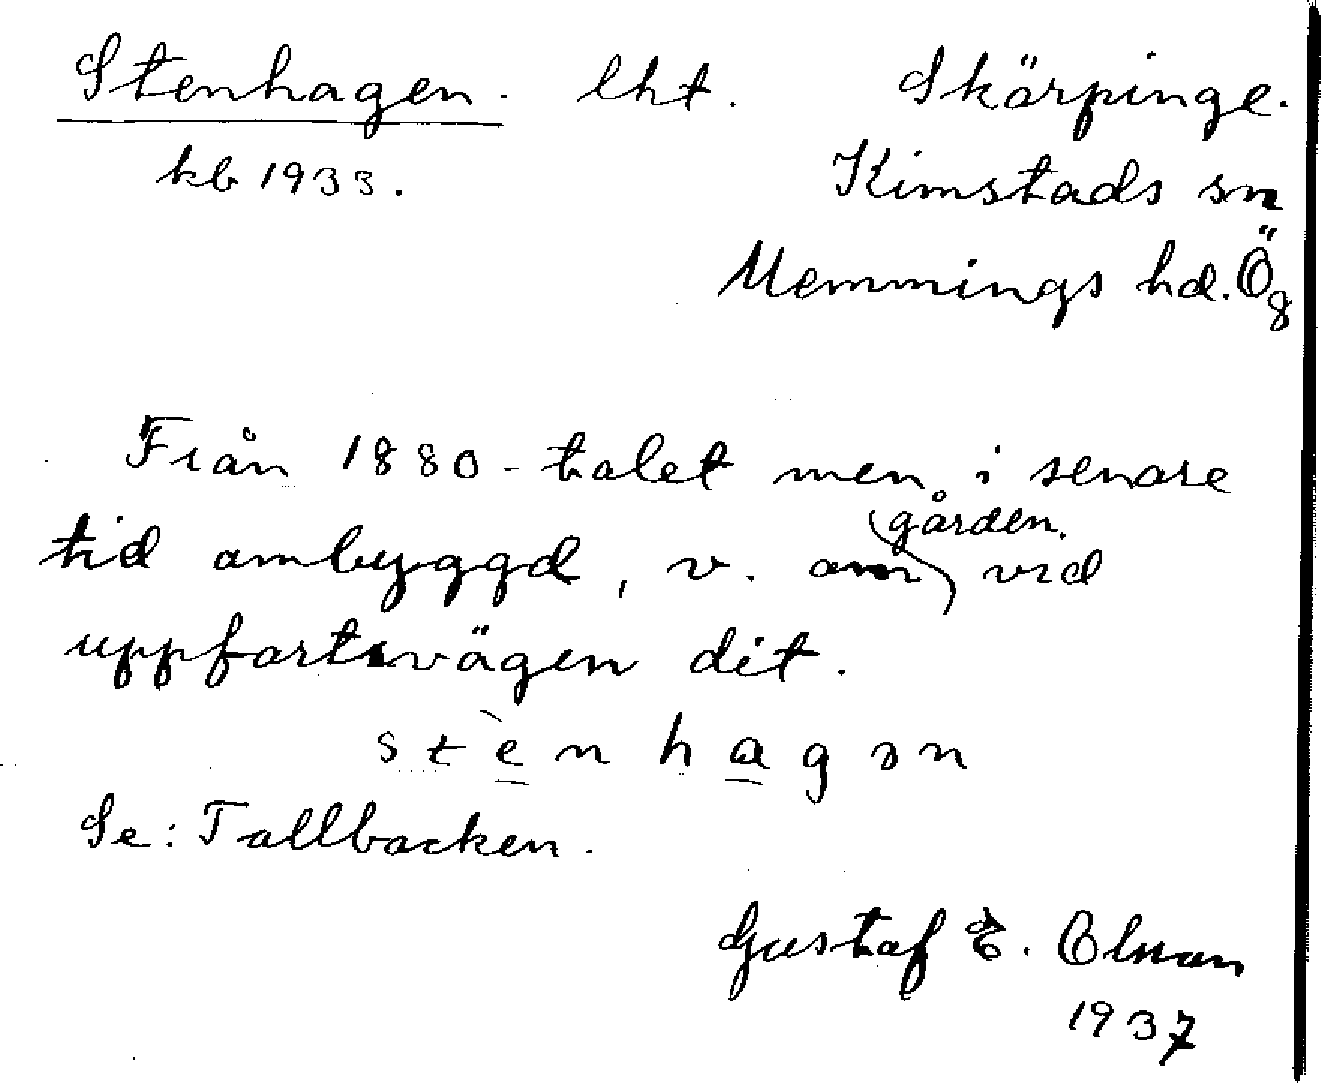 Stenhagen. lht. Skärpinge.
kb 1933. Kimstads sn
Memmings hd. Ög
Från 1880-talet men i senare
tid ombyggd, v. om gården. vid
uppfartsvägen dit.
s t è n h a g ə n
Se: Tallbacken.
Gustaf E. Olson
1937